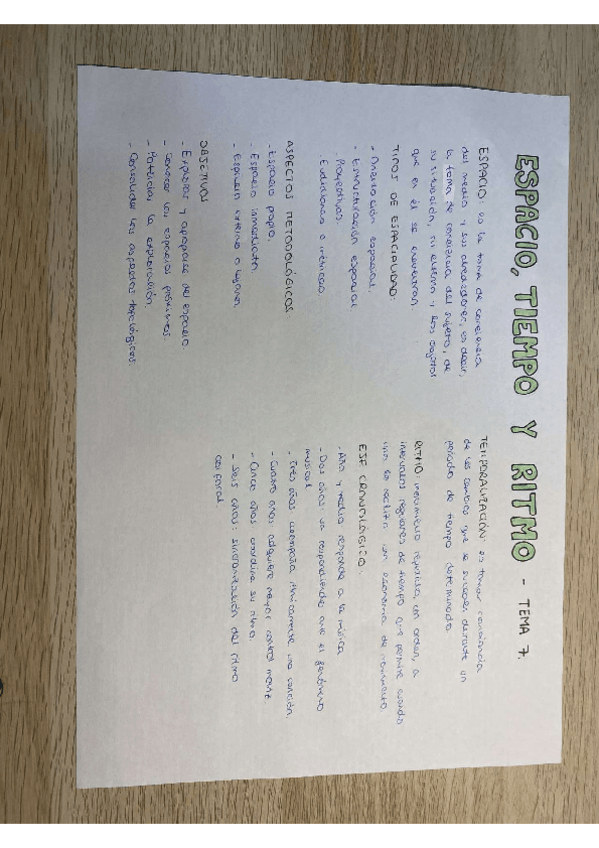 ESPACIO, TIEMPO Y RITMO - TEMA 7.
ESPACIO: es la toma de conciencia
del medio y sus alrededores, es decir,
la toma de conciencia del sujeto, de
su situación, su entorno y los objetos
que en él se encuentran
TIPOS DE ESPACIALIDAD.
- Orientación espacial.
- Estructuración espacial
. Proyectivas.
. Euclidianas o métricas.
ASPECTOS METODOLÓGICOS
. Espacio propio.
. Espacio inmediato
- Espacio externo o lejano.
OBJETIVOS
. Explorar y apropiarse del espacio.
- Conocer los espacios próximos
- Potenciar la exploración.
- Consolidar los aspectos topológicos.
TEMPORALIZACIÓN: es tomar conciencia
de los cambios que se suceden durante un
periodo de tiempo determinado
RITMO: movimiento repetido, con orden, a
intervalos regulares de tiempo que permite cuando
economía de movimiento.
EJE CRONOLÓGICO.
- Año y medio: responde a la música
- Dos años: va respondiendo que el
musical
- Tres años: acompaña rítmicamente una canción.
- Cuatro años: adquiere mayor control
- Cinco años: coordina su ritmo.
- Seis años: sincronización del ritmo
corporal.